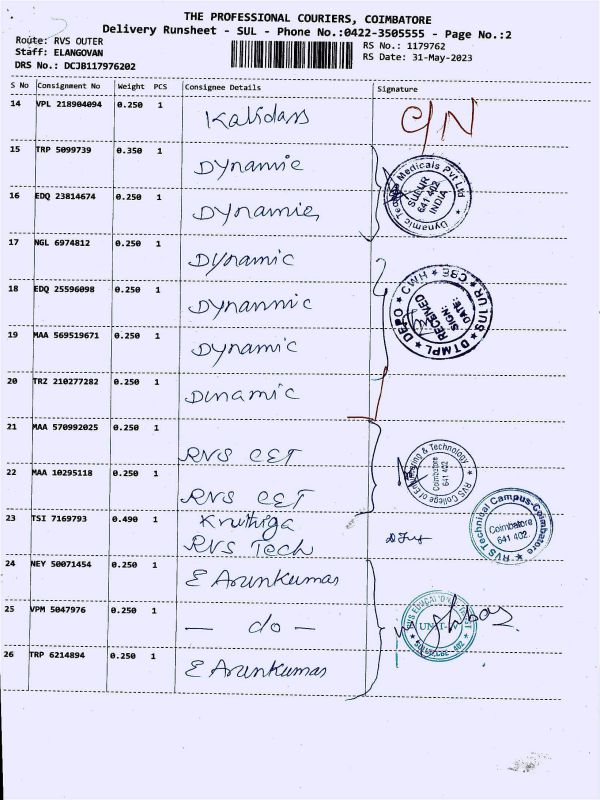 THE PROFESSIONAL COURIERS, COIMBATORE
Delivery Runsheet - SUL - Phone No.:0422-3505555 - Page No.:2
Route: RVS OUTER
Staff: ELANGOVAN
DRS No.: DCJB117976202
RS No.: 1179762
RS Date: 31-May-2023
S No Consignment No Weight PCS Consignee Details Signature
14 VPL 218904094 0.250 1 Kalidass C/N
15 TRP 5099739 0.350 1 Dynamic
Dynamic Techno Medicals Pvt Ltd
SULUR
641 402
INDIA
16 EDQ 23814674 0.250 1 Dynamic
17 NGL 6974812 0.250 1 Dynamic
18 EDQ 25596098 0.250 1 Dynamic
DTMPL ★ DEPO ★ CWH ★ HMC ★ CBE ★ SULUR
RECEIVED
SIGN:
DATE:
19 MAA 569519671 0.250 1 Dynamic
20 TRZ 210277282 0.250 1 Dinamic
21 MAA 570992025 0.250 1 RVS CET
RVS College of Engineering & Technology
Coimbatore
641 402
22 MAA 10295118 0.250 1 RVS CET
23 TSI 7169793 0.490 1 Kruthiga
RVS Tech
RVS Technical Campus-Coimbatore
Coimbatore
641 402.
24 NEY 50071454 0.250 1 E Arunkumar
25 VPM 5047976 0.250 1 — do —
26 TRP 6214894 0.250 1 E Arunkumar